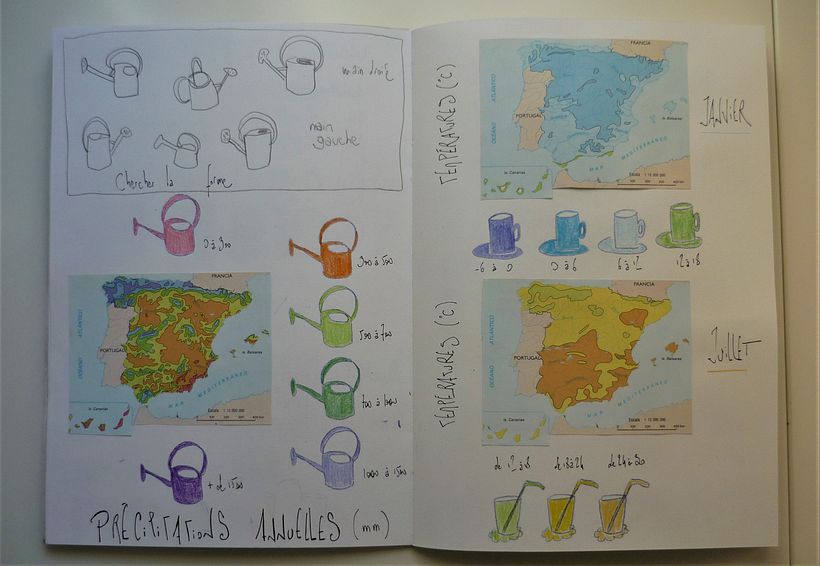 main droite
main gauche
Chercher la forme
0 à 300
300 à 500
FRANCIA
OCÉANO ATLÁNTICO
PORTUGAL
is. Baleares
MAR MEDITERRÁNEO
is. Canarias
Escala 1: 10 000 000
500 à 700
700 à 1000
1000 à 1500
+ de 1500
PRÉCIPITATIONS ANNUELLES (mm)
TEMPÉRATURES (°C)
FRANCIA
OCÉANO ATLÁNTICO
PORTUGAL
is. Baleares
MAR MEDITERRÁNEO
is. Canarias
JANVIER
-6 à 0
0 à 6
6 à 12
12 à 18
TEMPÉRATURES (°C)
FRANCIA
OCÉANO ATLÁNTICO
PORTUGAL
is. Baleares
MAR MEDITERRÁNEO
is. Canarias
JUILLET
de 12 à 18
de 18 à 24
de 24 à 30